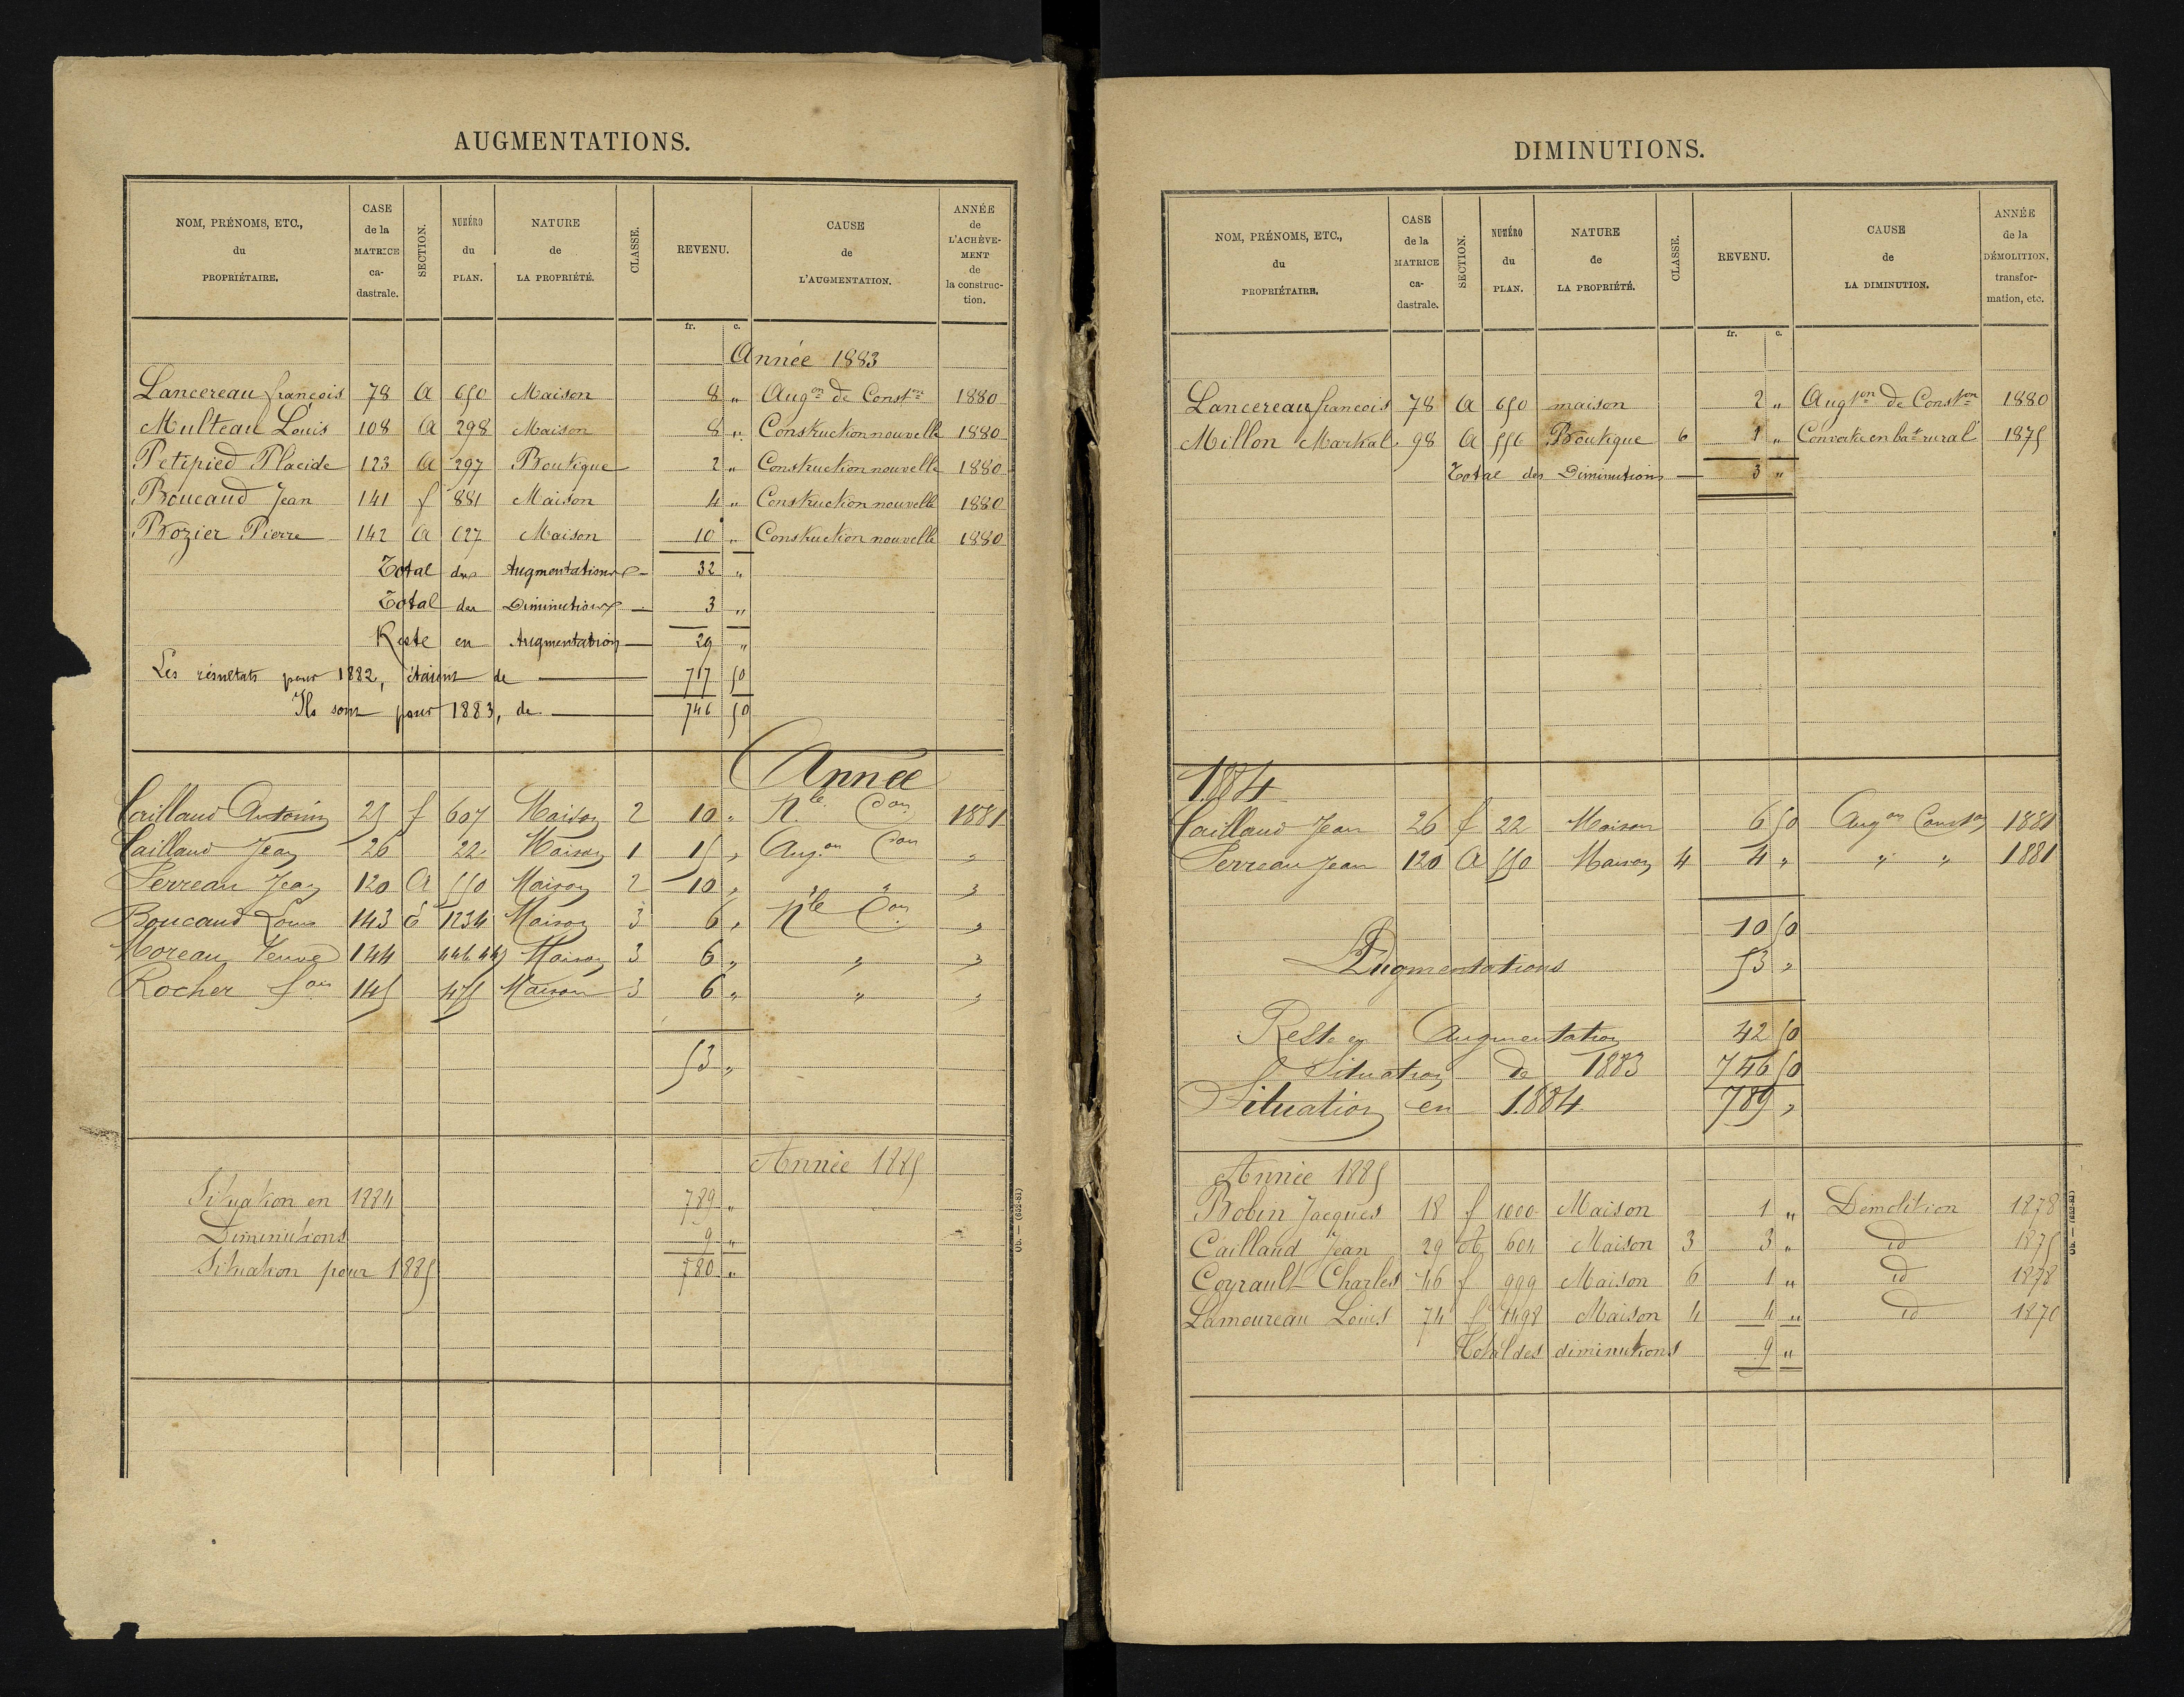 AUGMENTATIONS.
NOM, PRÉNOMS, ETC., du PROPRIÉTAIRE. CASE de la MATRICE ca-dastrale. SECTION. NUMÉRO du PLAN. NATURE de LA PROPRIÉTÉ. CLASSE. REVENU. CAUSE de L'AUGMENTATION. ANNÉE de L'ACHÈVE-MENT de la construc-tion.
fr. c.
Année 1883
Lancereau françois 78 A 650 Maison 8 " Augon de Conston 1880
Multeau Louis 108 A 298 Maison 8 " Construction nouvelle 1880
Petipied Placide 123 A 297 Boutique 2 " Construction nouvelle 1880
Boucaud Jean 141 f 881 Maison 4 " Construction nouvelle 1880
Brozier Pierre 142 A 627 Maison 10 " Construction nouvelle 1880
Total des Augmentations 32 "
Total des Diminutions 3 "
Reste en Augmentation 29 "
Les résultats pour 1882, étaient de 717 50
Ils sont pour 1883, de 746 50
Année
Caillaud Antonin 25 f 607 Maison 2 10 " Nle Con 1881
Caillaud Jean 26 22 Maison 1 15 " Augon Con "
Serreau Jean 120 A 550 Maison 2 10 " " " "
Boucaud Louis 143 E 1234 Maison 3 6 " Nle Con "
Moreau Veuve 144 446 447 Maison 3 6 " " "
Rocher fois 145 475 Maison 3 6 " " "
53 "
Année 1885
Situation en 1884 789 "
Diminutions 9 "
Situation pour 1885 780 "
Ub. — (652-83)
DIMINUTIONS.
NOM, PRÉNOMS, ETC., du PROPRIÉTAIRE. CASE de la MATRICE ca-dastrale. SECTION. NUMÉRO du PLAN. NATURE de LA PROPRIÉTÉ. CLASSE. REVENU. CAUSE de LA DIMINUTION. ANNÉE de la DÉMOLITION, transfor-mation, etc.
fr. c.
Lancereau francois 78 A 650 maison 2 " Augton de Conston 1880
Millon Martial 98 A 556 Boutique 6 1 " Convertie en bat rural 1875
Total des Diminutions 3 "
1884
Caillaud Jean 26 f 22 Maison 6 50 Augon Conston 1881
Serreau Jean 120 A 550 Maison 4 4 " " " 1881
10 50
Augmentations 53 "
Reste en Augmentation 42 50
Situation de 1883 746 50
Situation en 1884 789 "
Année 1885
Bobin Jacques 18 f 1000 Maison 1 " Demolition 1878
Caillaud Jean 29 604 Maison 3 3 " id 1875
Coyrault Charles 46 f 999 Maison 6 1 " id 1878
Lamoureau Louis 74 f 1498 Maison 4 4 " id 1870
Total des diminutions 9 "
Ub. — (652-83)